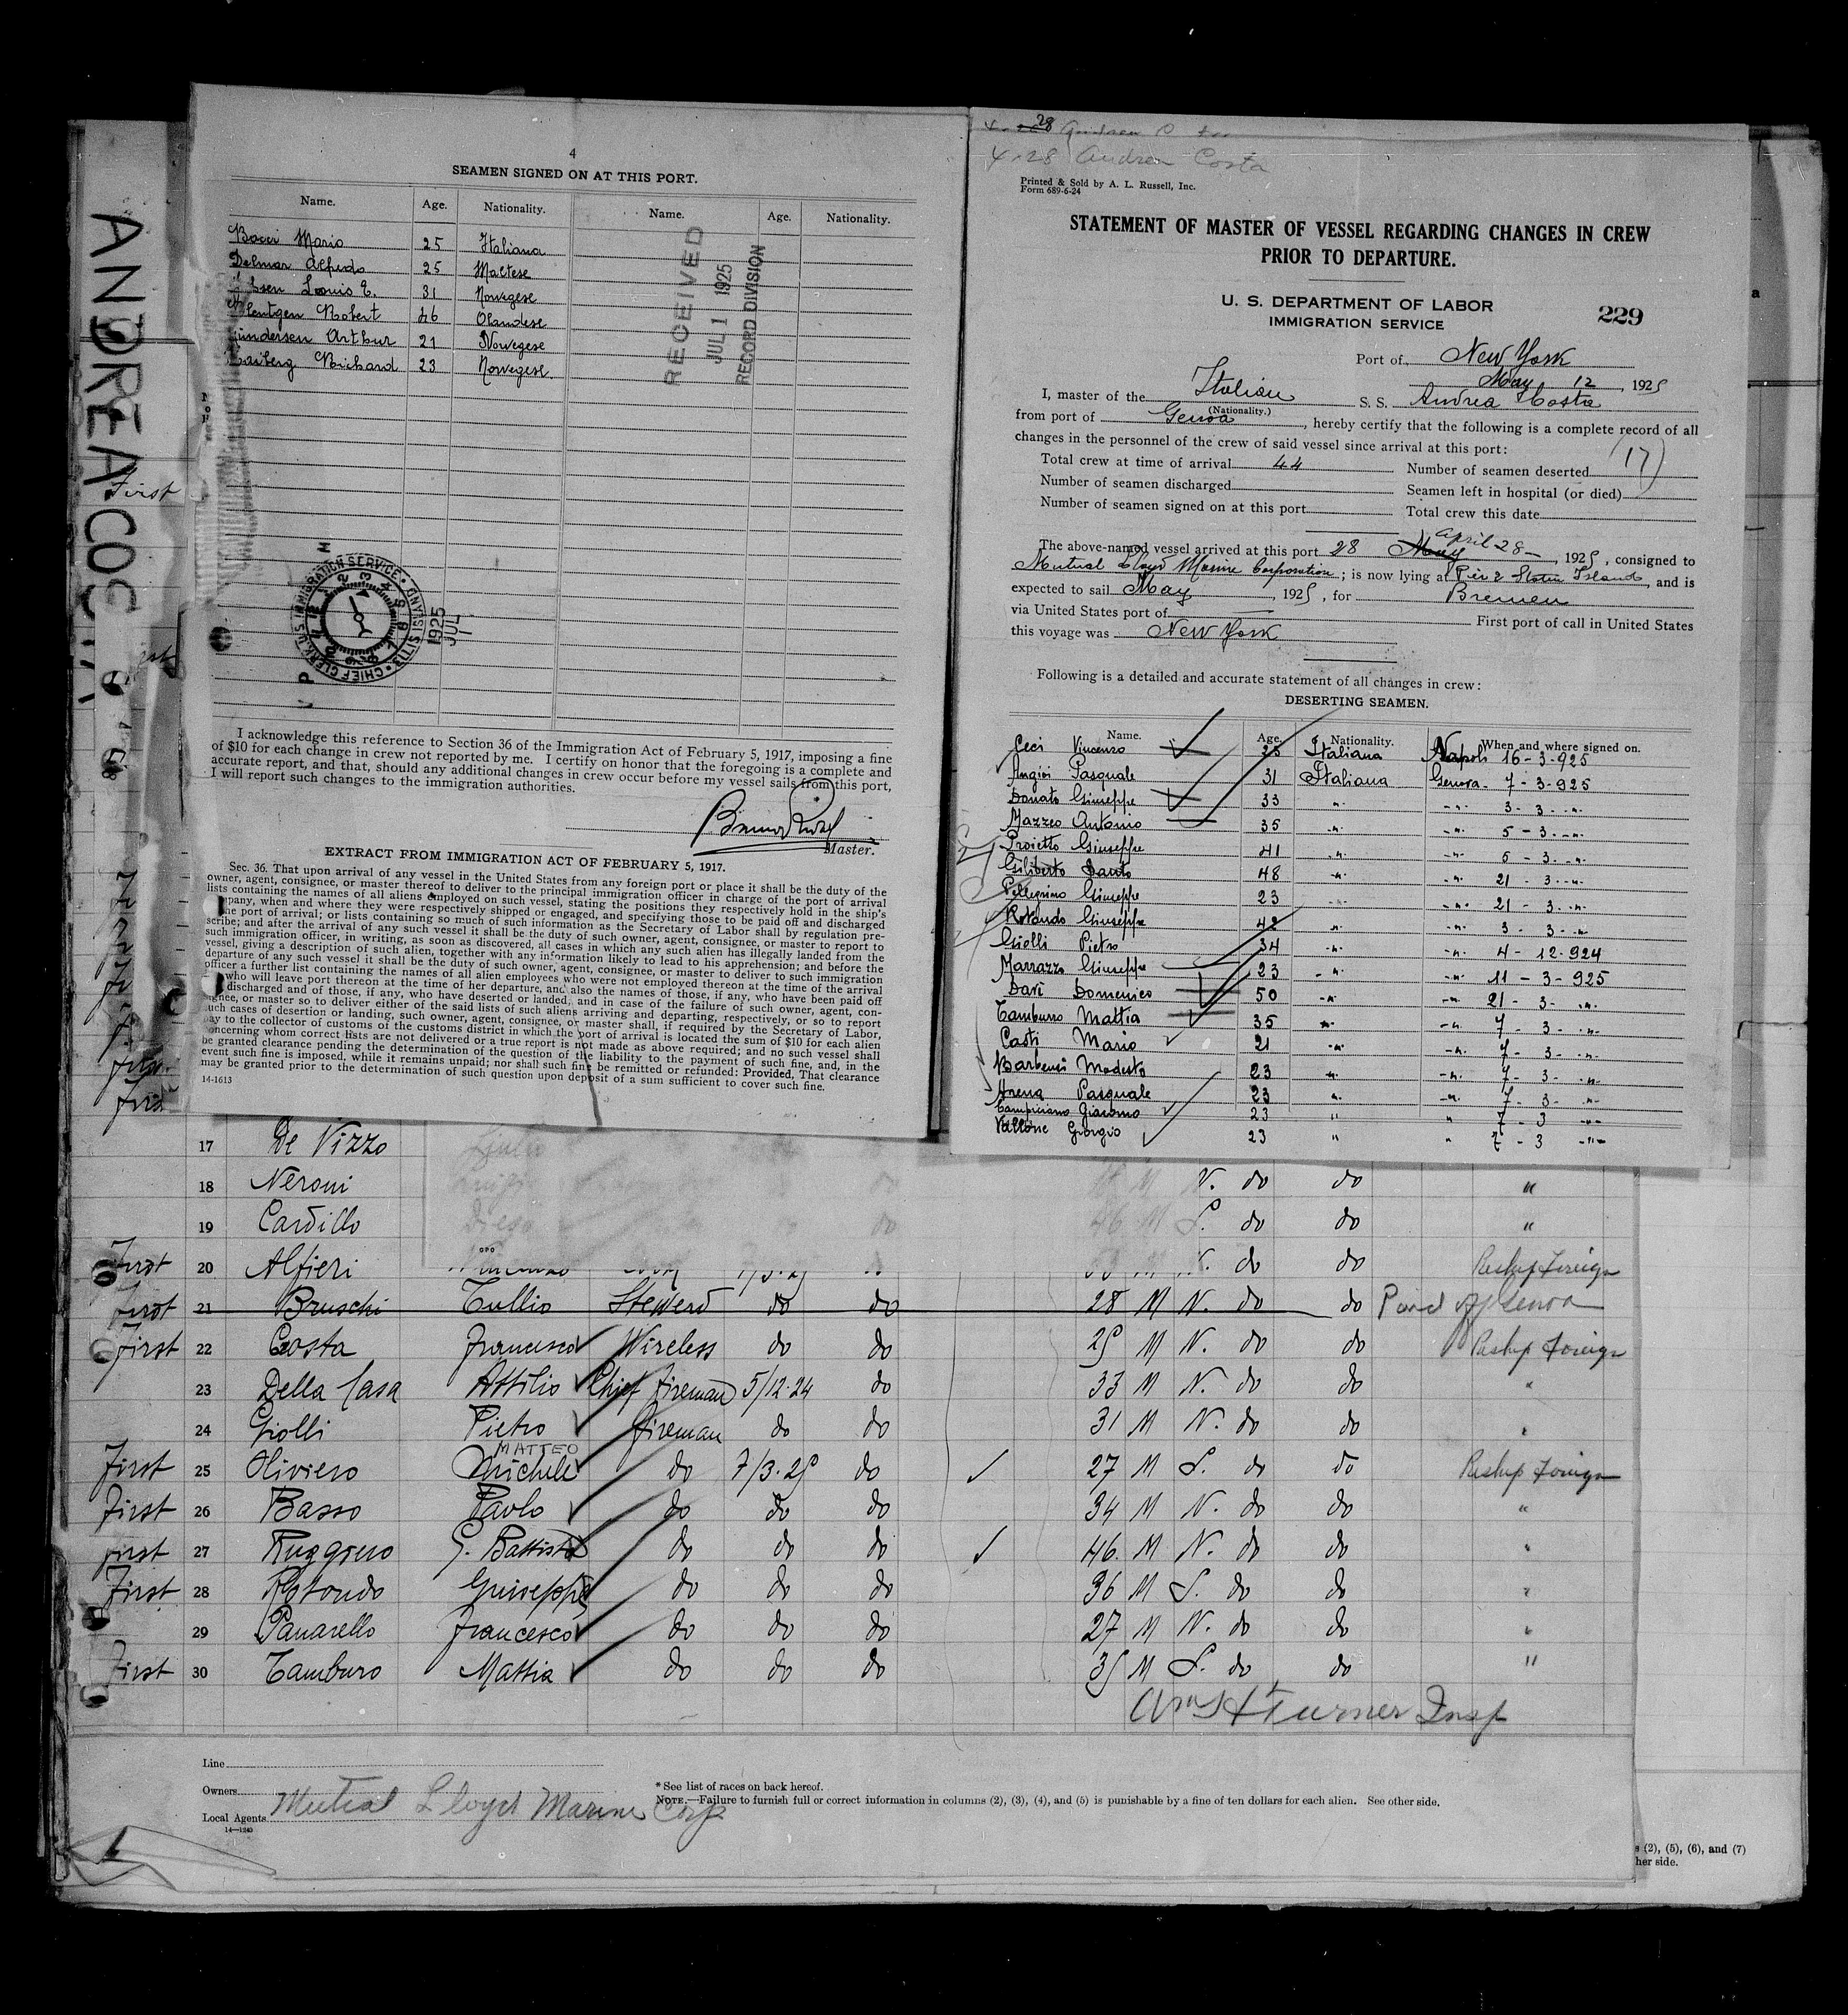 ANDREA COSTA
4
SEAMEN SIGNED ON AT THIS PORT.
Name. Age. Nationality. Name. Age. Nationality.
Bacci Mario 25 Italiana
Delmar Alfredo 25 Maltese
Louis E. 31 Norvegese
Robert 46 Olandese
Gundersen Arthur 21 Norvegese
Richard 23 Norvegese
RECEIVED
JUL 1 1925
RECORD DIVISION
U.S. IMMIGRATION SERVICE • CHIEF CLERK
1925
JUL 1
I acknowledge this reference to Section 36 of the Immigration Act of February 5, 1917, imposing a fine
of $10 for each change in crew not reported by me. I certify on honor that the foregoing is a complete and
accurate report, and that, should any additional changes in crew occur before my vessel sails from this port,
I will report such changes to the immigration authorities.
Master.
EXTRACT FROM IMMIGRATION ACT OF FEBRUARY 5, 1917.
Sec. 36. That upon arrival of any vessel in the United States from any foreign port or place it shall be the duty of the
owner, agent, consignee, or master thereof to deliver to the principal immigration officer in charge of the port of arrival
lists containing the names of all aliens employed on such vessel, stating the positions they respectively hold in the ship's
company, when and where they were respectively shipped or engaged, and specifying those to be paid off and discharged
the port of arrival; or lists containing so much of such information as the Secretary of Labor shall by regulation pre-
scribe; and after the arrival of any such vessel it shall be the duty of such owner, agent, consignee, or master to report to
such immigration officer, in writing, as soon as discovered, all cases in which any such alien has illegally landed from the
vessel, giving a description of such alien, together with any information likely to lead to his apprehension; and before the
departure of any such vessel it shall be the duty of such owner, agent, consignee, or master to deliver to such immigration
officer a further list containing the names of all alien employees who were not employed thereon at the time of the arrival
who will leave port thereon at the time of her departure, and also the names of those, if any, who have been paid off
discharged and of those, if any, who have deserted or landed, and in case of the failure of such owner, agent, con-
signee, or master so to deliver either of the said lists of such aliens arriving and departing, respectively, or so to report
such cases of desertion or landing, such owner, agent, consignee, or master shall, if required by the Secretary of Labor,
pay to the collector of customs of the customs district in which the port of arrival is located the sum of $10 for each alien
concerning whom correct lists are not delivered or a true report is not made as above required; and no such vessel shall
be granted clearance pending the determination of the question of the liability to the payment of such fine, and, in the
event such fine is imposed, while it remains unpaid; nor shall such fine be remitted or refunded: Provided, That clearance
may be granted prior to the determination of such question upon deposit of a sum sufficient to cover such fine.
14-1613
4-28 Andrea Costa
Printed & Sold by A. L. Russell, Inc.
Form 689-6-24
STATEMENT OF MASTER OF VESSEL REGARDING CHANGES IN CREW
PRIOR TO DEPARTURE.
U. S. DEPARTMENT OF LABOR
IMMIGRATION SERVICE
229
Port of New York
May 12, 1925
I, master of the Italian S. S. Andrea Costa
(Nationality.)
from port of Genoa, hereby certify that the following is a complete record of all
changes in the personnel of the crew of said vessel since arrival at this port:
Total crew at time of arrival 44 Number of seamen deserted (17)
Number of seamen discharged Seamen left in hospital (or died)
Number of seamen signed on at this port Total crew this date
The above-named vessel arrived at this port 28 May April 28-, 1925, consigned to
Mutual Lloyd Marine Corporation; is now lying at Pier 2 Staten Island, and is
expected to sail May, 1925, for Bremen
via United States port of First port of call in United States
this voyage was New York
Following is a detailed and accurate statement of all changes in crew:
DESERTING SEAMEN.
Name. Age. Nationality. When and where signed on.
Ceci Vincenzo 25 Italiana Napoli 16-3-925
Angioi Pasquale 31 Italiana Genova 7-3-925
Donato Giuseppe 33 -"- -"- 3-3-"-
Mazzeo Antonio 35 -"- -"- 5-3-"-
Proietto Giuseppe 41 -"- -"- 5-3-"-
Giliberto Santo 48 -"- -"- 21-3-"-
Pellegrino Giuseppe 23 -"- -"- 21-3-"-
Rotondo Giuseppe 42 -"- -"- 3-3-"-
Giolli Pietro 34 -"- -"- 4-12-924
Marrazzo Giuseppe 23 -"- -"- 11-3-925
Dari Domenico 50 -"- -"- 21-3-"-
Tamburro Mattia 35 -"- -"- 7-3-"-
Casti Mario 21 -"- -"- 7-3-"-
Barbensi Modesto 23 -"- -"- 7-3-"-
Arena Pasquale 23 " -"- 7-3-"-
Campiciano Giacomo 23 " " 7-3 -"-
Vallone Giorgio 23 " " 7-3 -"-
17 De Vizzo Giulio
18 Neroni M N. do do "
19 Cardillo Diego do 46 M S. do do "
First 20 Alfieri M N. do do Reship Foreign
First 21 Bruschi Tullio Steward do do 28 M N. do do Paid off Genoa
First 22 Costa Francesco Wireless do do 25 M N. do do Reship Foreign
23 Della Casa Attilio Chief fireman 5/12-24 do 33 M N. do do "
24 Giolli Pietro fireman do do 31 M N. do do "
MATTEO
First 25 Oliviero Michele do 7/3-25 do 27 M S. do do Reship Foreign
First 26 Basso Paolo do do do 34 M N. do do "
First 27 Ruggiero G. Battista do do do 46 M N. do do "
First 28 Rotondo Guiseppe do do do 36 M S. do do "
29 Panarello Francesco do do do 27 M N. do do "
First 30 Tamburo Mattia do do do 35 M S. do do "
Wm H Turner Insp
Line
Owners
Local Agents Mutual Lloyd Marine Corp
14-1240
* See list of races on back hereof.
NOTE.—Failure to furnish full or correct information in columns (2), (3), (4), and (5) is punishable by a fine of ten dollars for each alien. See other side.
s (2), (5), (6), and (7)
her side.